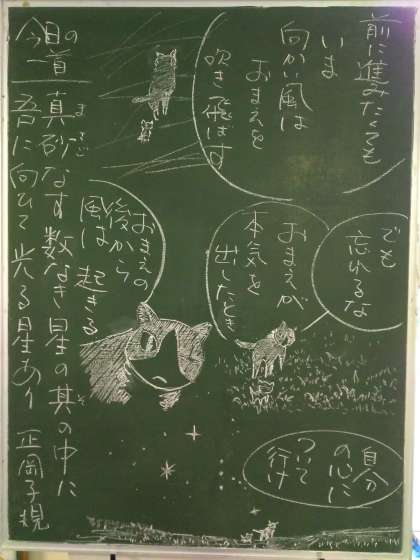 前に進みたくても
いま
向かい風は
おまえを
吹き飛ばす
でも
忘れるな
おまえが
本気を
出したとき
おまえの
後から
風は起きる
自分
の心に
ついて
行け
今日の
一首
まさご
真砂なす数なき星の其の中に
吾に向ひて光る星あり 正岡子規